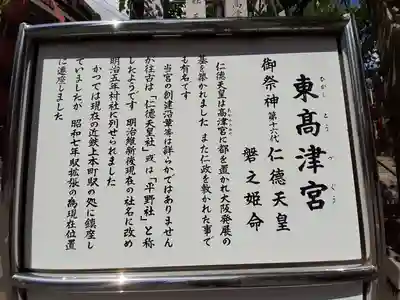 東髙津宮
ひがし こう づ ぐう
御祭神 第十六代 仁徳天皇
磐之姫命
仁徳天皇は高津宮に都を置かれ大阪発展の
基を築かれました また仁政を敷かれた事で
も有名です
当宮の創建沿革等は詳らかではありません
が往古は「仁徳天皇社」或は「平野社」と称
したようです 明治維新後現在の社名に改め
明治五年村社に列せられました
かつては現在の近鉄上本町駅の処に鎮座し
ていましたが 昭和七年駅拡張の為現在位置
に遷座しました